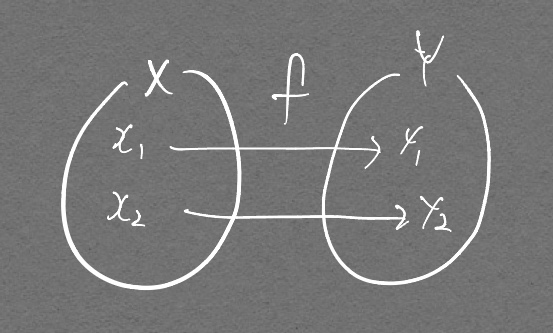 X f Y
x₁ → y₁
x₂ → y₂